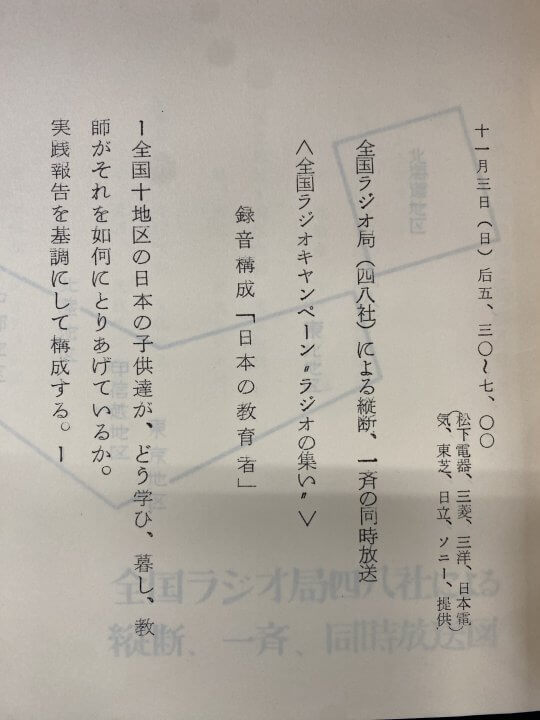 十一月三日(日)后五、三〇~七、〇〇
(松下電器、三菱、三洋、日本電
気、東芝、日立、ソニー、提供)
全国ラジオ局(四八社)による縦断、一斉の同時放送
〈全国ラジオキャンペーン〃ラジオの集い〃〉
録音構成「日本の教育者」
ー全国十地区の日本の子供達が、どう学び、暮し、教
師がそれを如何にとりあげているか。
実践報告を基調にして構成する。ー
北海道地区
東北地区
東京地区
甲信越地区
全国ラジオ局四八社による
縦断、一斉、同時放送図